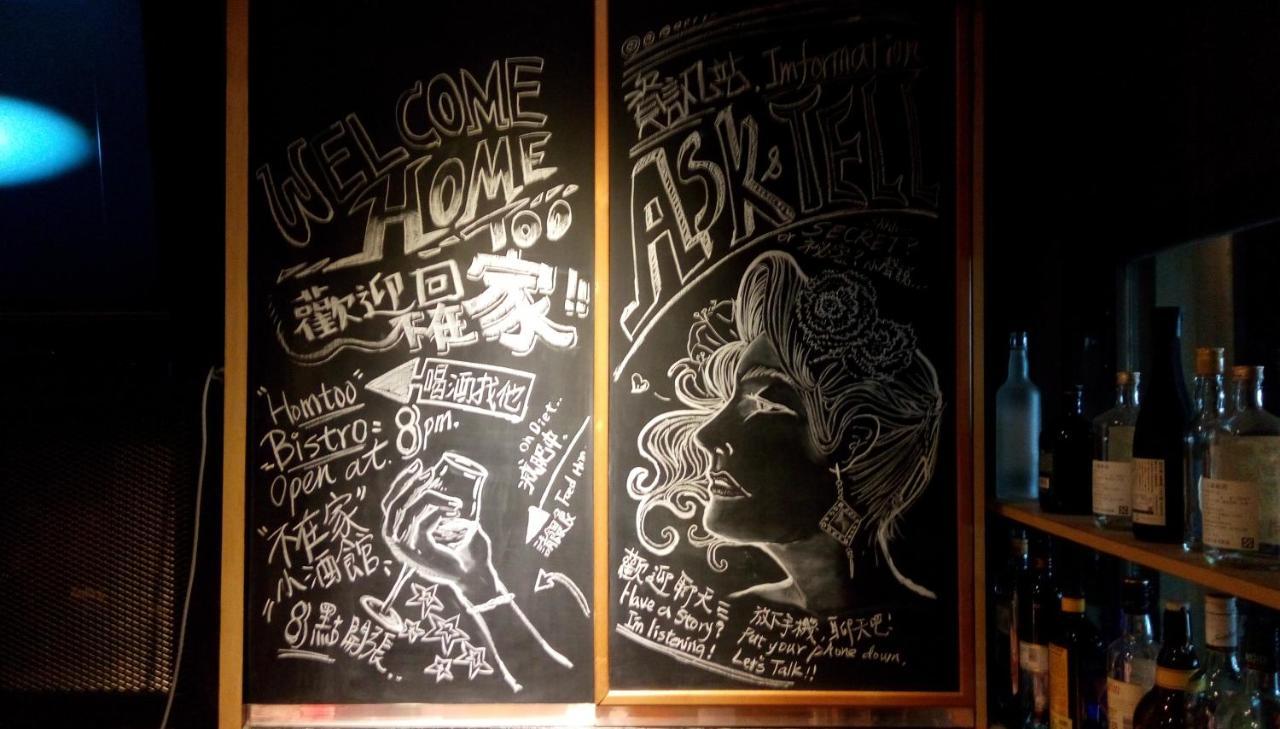 WELCOME
HOME
TOO
歡迎回家!!
不在
喝酒找他
"Homtoo"
Bistro
Open at 8pm.
"不在家"
小酒館
8點開張..
on Diet..
減肥中
請餵食 Feed Him
資訊站 Imformation
ASK & TELL
or SECRET?
秘密?小聲說...
歡迎聊天
Have a story?
I'm listening!
放下手機,聊天吧!
Put your phone down,
Let's Talk!!